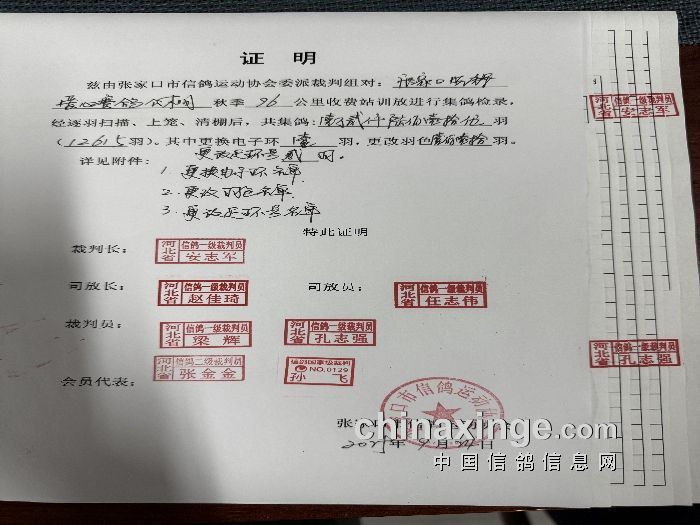 证 明
兹由张家口市信鸽运动协会委派裁判组对：张家口
赛鸽 秋季 96 公里收费站训放进行集鸽检录，
经逐羽扫描、上笼、清棚后，共集鸽：壹万贰仟陆佰壹拾伍 羽
（12615羽），其中更换电子环 壹 羽，更改羽色
更改足环号 贰 羽。
详见附件：
1. 更换电子环名单
2. 更改羽色名单
3. 更改足环号名单
特此证明
裁判长： 河北省 信鸽一级裁判员 安志军
司放长： 河北省 信鸽一级裁判员 赵佳琦 司放员： 河北省 信鸽一级裁判员 任志伟
裁判员： 河北省 信鸽一级裁判员 梁辉 河北省 信鸽一级裁判员 孔志强
河北省 信鸽二级裁判员 张金金 信鸽国家级裁判 NO.0129 孙飞
会员代表：
口市信鸽运动
张
9月24日
河北省 信鸽一级裁判员 安志军
河北省 信鸽一级裁判员 孔志强
chinaxinge.com
中国信鸽信息网